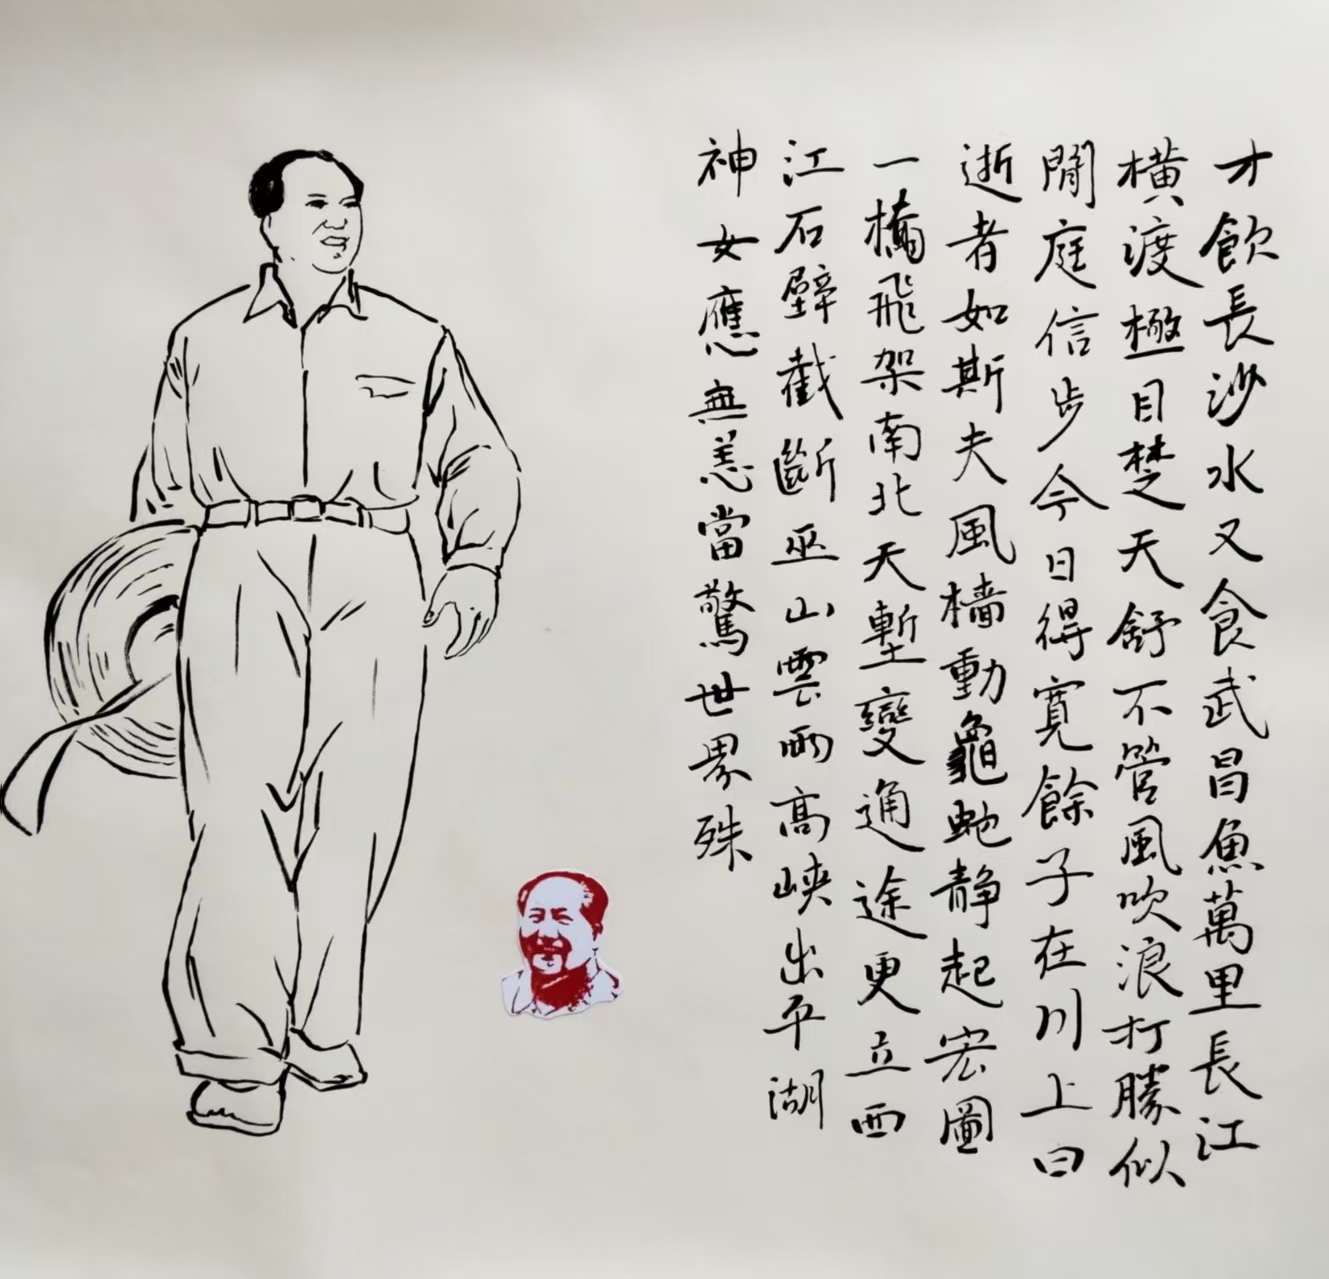 才飲長沙水又食武昌魚萬里長江
橫渡極目楚天舒不管風吹浪打勝似
閒庭信步今日得寬餘子在川上曰
逝者如斯夫風檣動龜虵静起宏圖
一橋飛架南北天塹變通途更立西
江石壁截斷巫山雲雨高峽出平湖
神女應無恙當驚世界殊